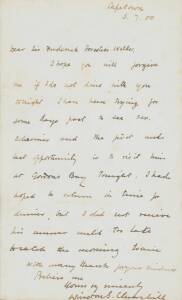 Capetown
5. 7. 00
Dear Sir Frederick Forestier-Walker,
I hope you will forgive
me if I do not dine with you
tonight I have been trying for
some days past to see
and the first and
last opportunity is to visit him
at Gordon's Bay tonight. I had
hoped to return in time for
dinner, but I did not receive
his answer until too late
to catch the morning train
With many thanks
Believe me
Yours vy sincerely
Winston S. Churchill